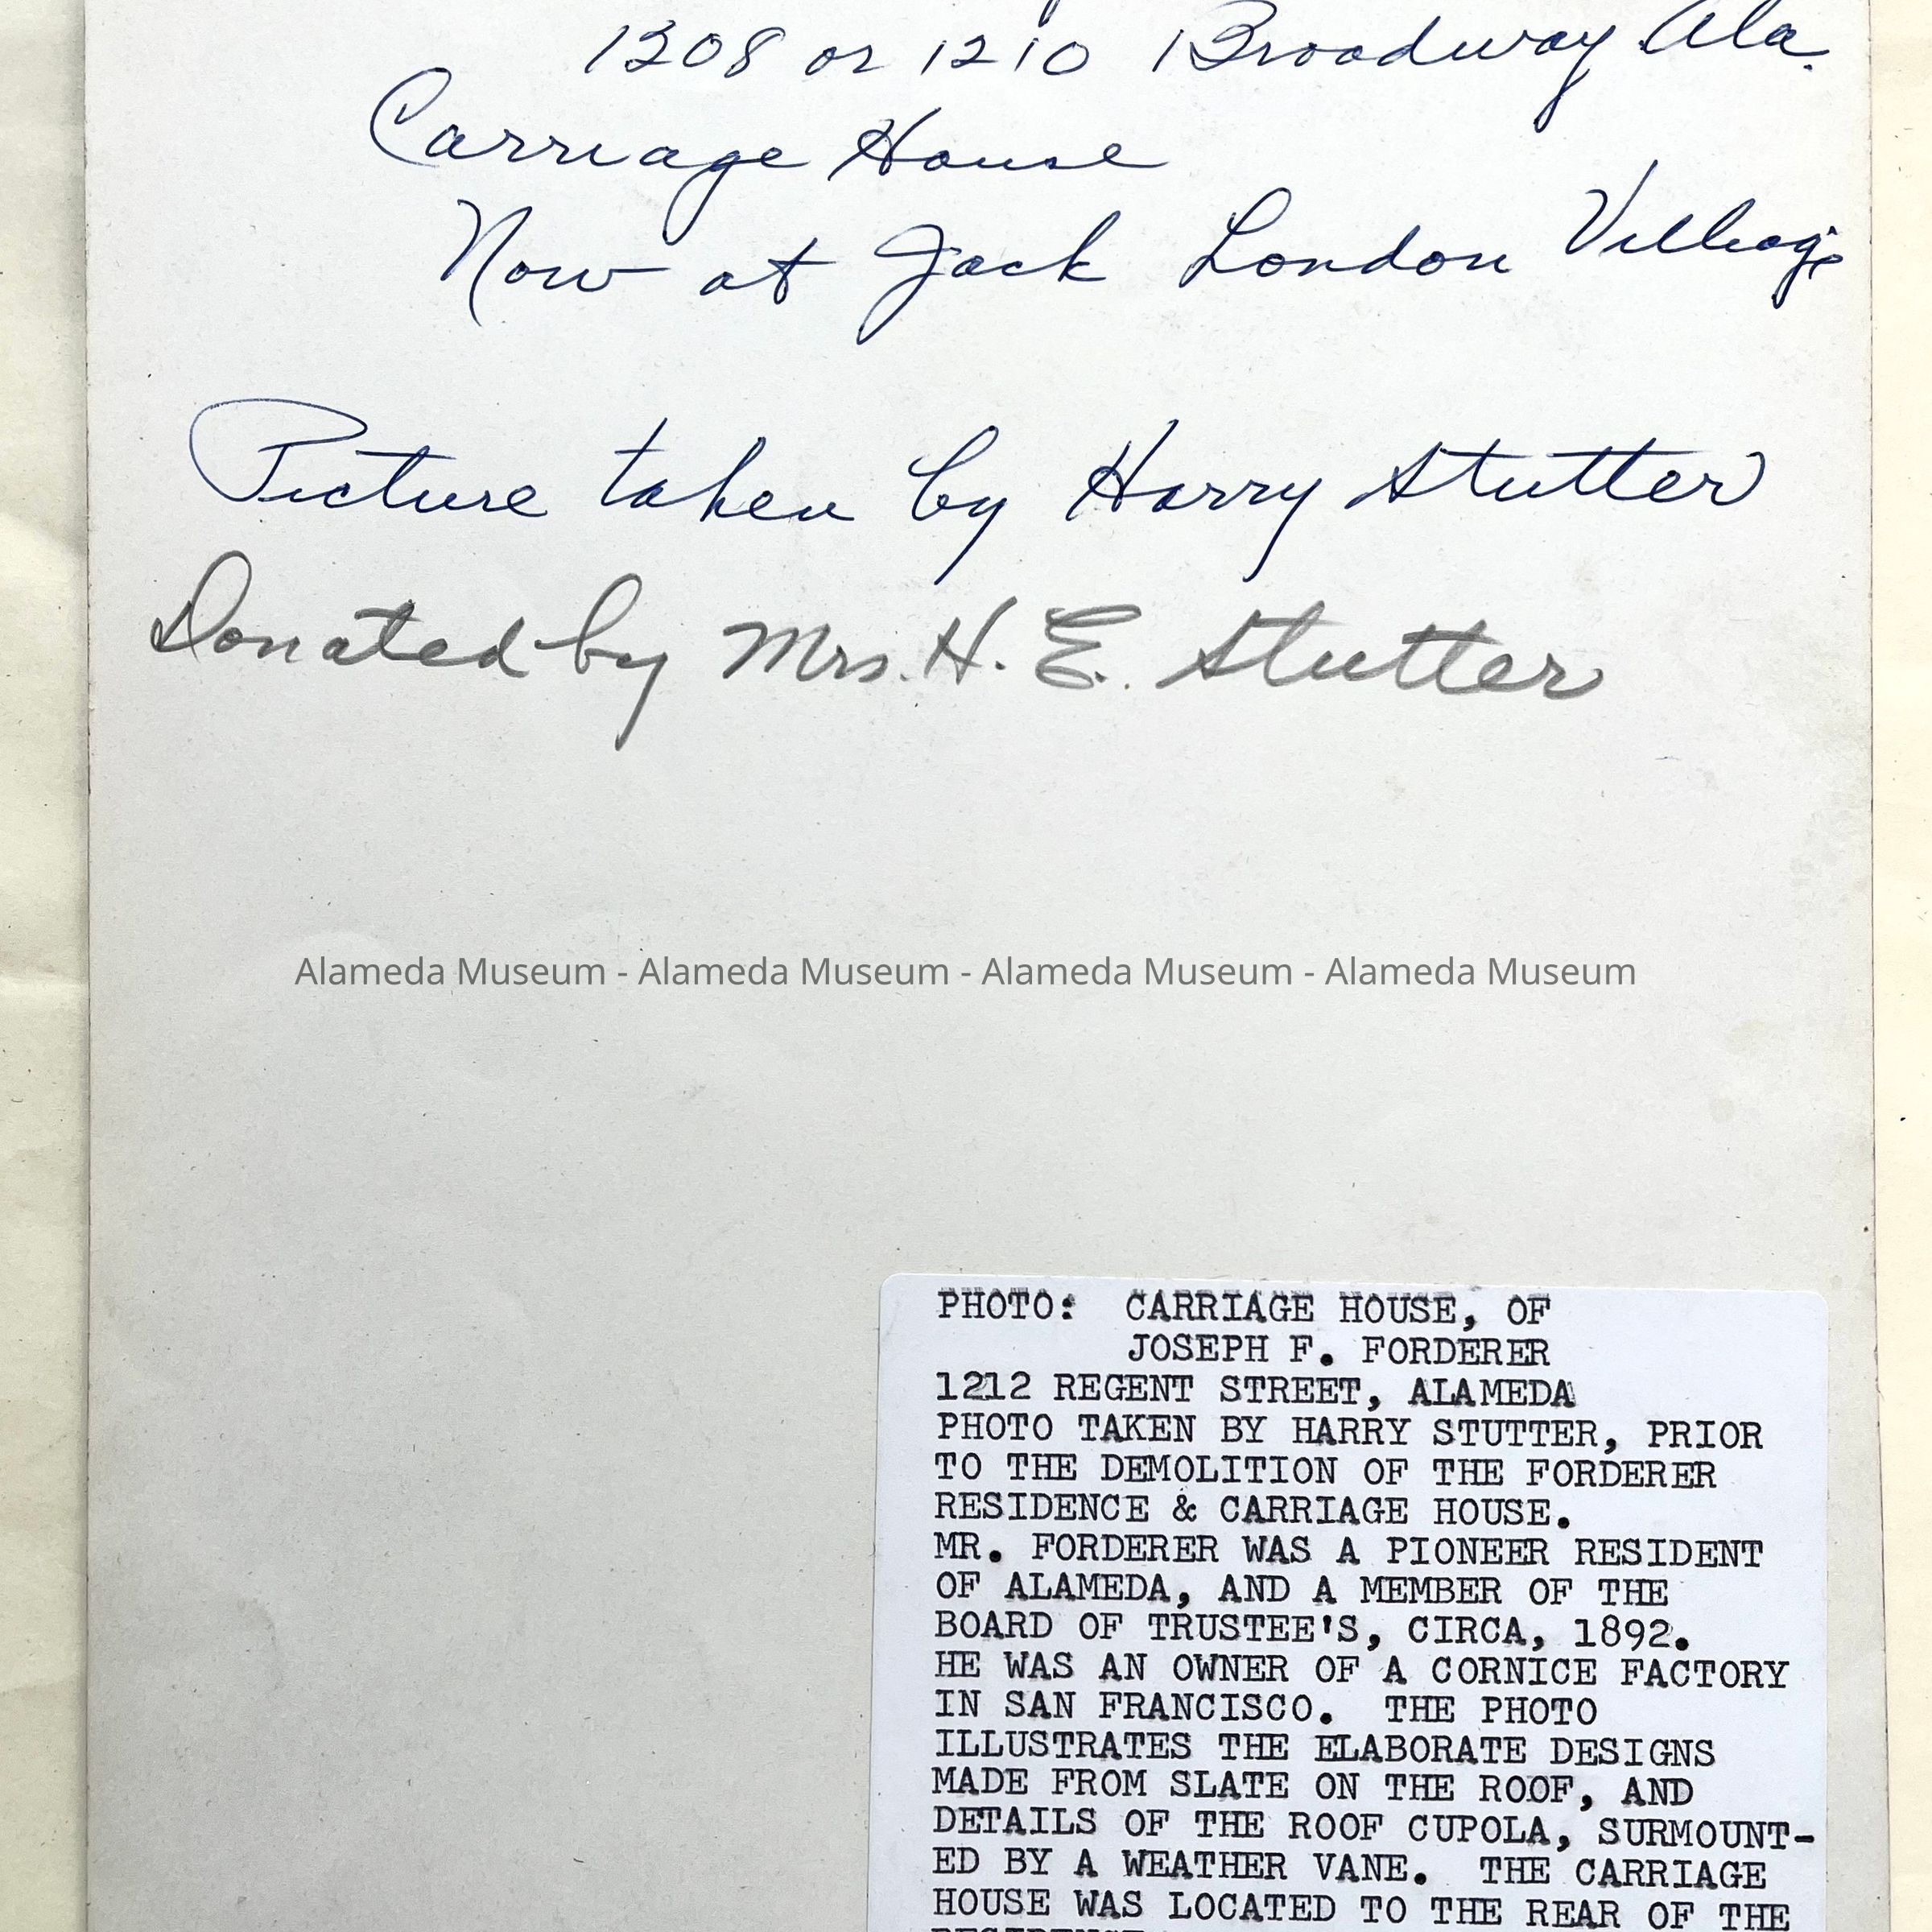 1308 or 1210 Broadway Ala.
Carriage House
Now at Jack London Village
Picture taken by Harry Stutter
Donated by Mrs. H. E. Stutter
Alameda Museum - Alameda Museum - Alameda Museum - Alameda Museum
PHOTO: CARRIAGE HOUSE, OF
JOSEPH F. FORDERER
1212 REGENT STREET, ALAMEDA
PHOTO TAKEN BY HARRY STUTTER, PRIOR
TO THE DEMOLITION OF THE FORDERER
RESIDENCE & CARRIAGE HOUSE.
MR. FORDERER WAS A PIONEER RESIDENT
OF ALAMEDA, AND A MEMBER OF THE
BOARD OF TRUSTEE'S, CIRCA, 1892.
HE WAS AN OWNER OF A CORNICE FACTORY
IN SAN FRANCISCO. THE PHOTO
ILLUSTRATES THE ELABORATE DESIGNS
MADE FROM SLATE ON THE ROOF, AND
DETAILS OF THE ROOF CUPOLA, SURMOUNT-
ED BY A WEATHER VANE. THE CARRIAGE
HOUSE WAS LOCATED TO THE REAR OF THE